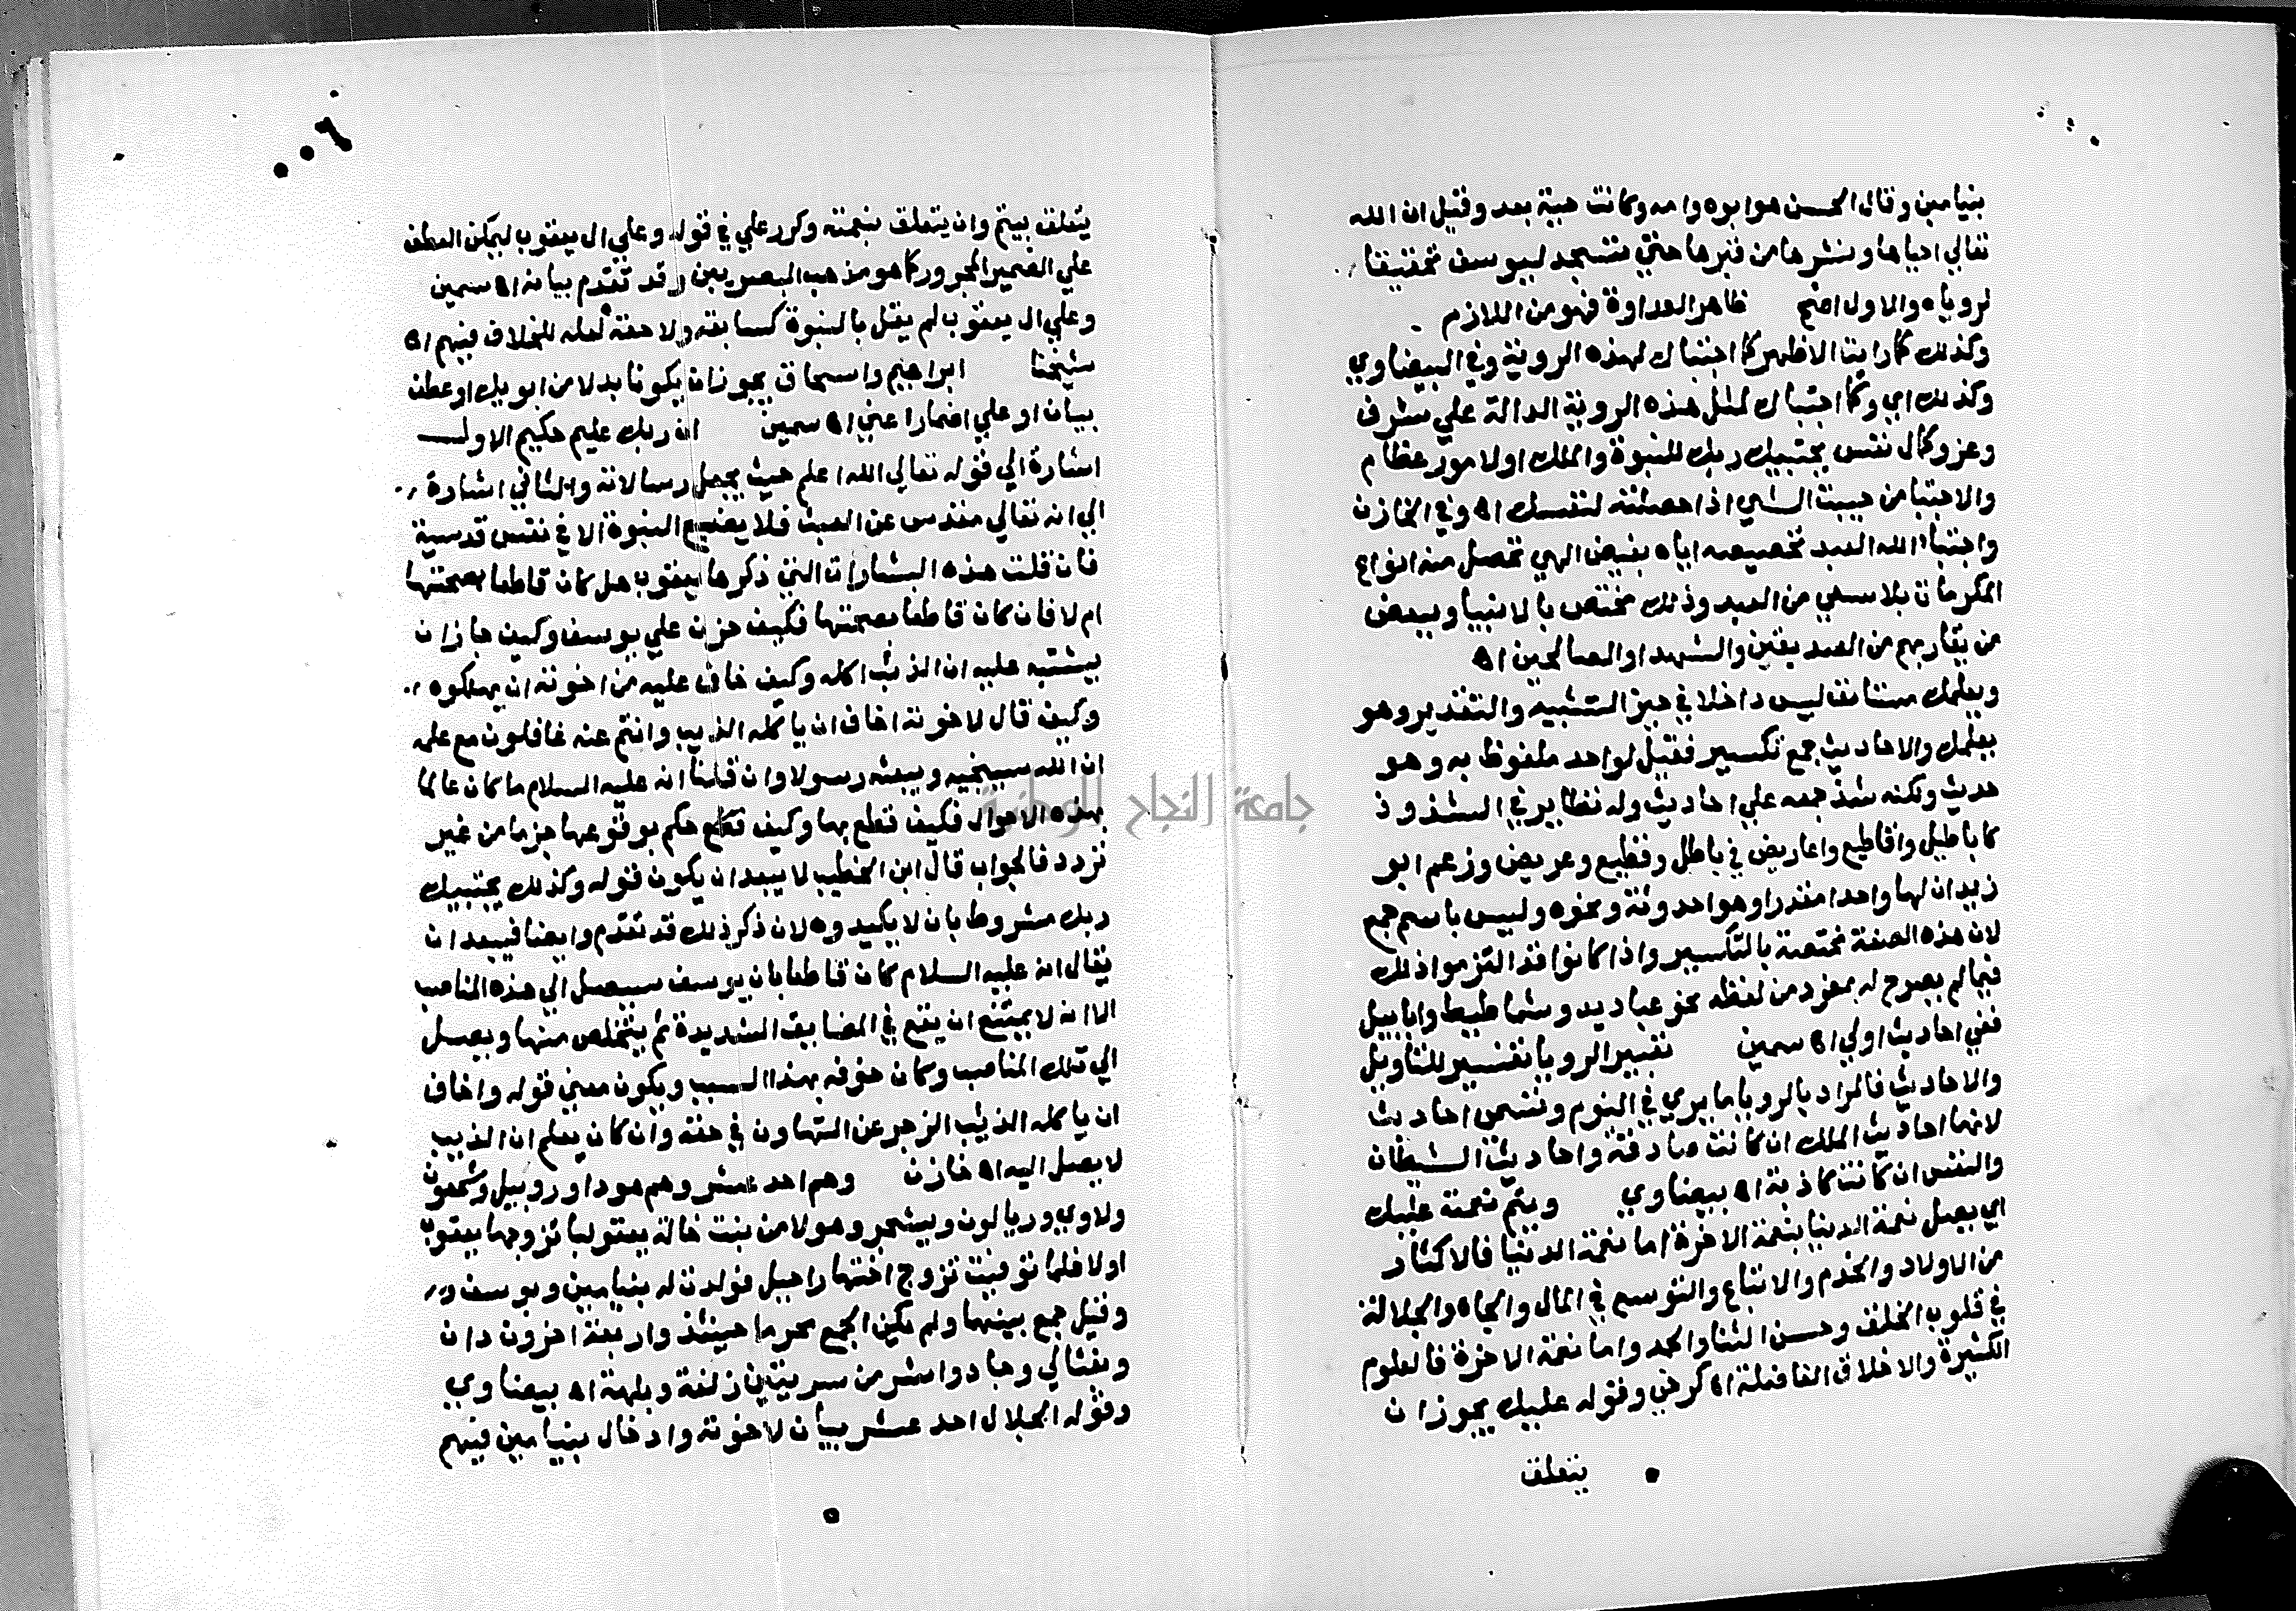 بنيامين وقال الحسن هو ابوه وامه وكانت حية بعد وقيل ان الله
تعالي احياها ونشرها من قبرها حتي تسجد ليوسف تحقيقا
لروياه والاول اصح ظاهر العداوة فهو من اللازم
وكذلك كما رايت الاظهر كما اجتباك لهذه الروية وفي البيضاوي
وكذلك اي وكما اجتباك لمثل هذه الروية الدالة علي شرف
وعز وكمال نفس يجتبيك ربك للنبوة والملك او لامور عظام
والاجتبا من جبيت الشي اذا حصلته لنفسك اه وفي الخازن
واجتباء الله العبد تخصيصه اياه بفيض الهي تحصل منه انواع
المكرمات بلا سعي من العبد وذلك مختص بالانبيا وببعض
من يقاربهم من الصديقين والشهدا والصالحين اه
ويعلمك مستانف ليس داخلا في حيز التشبيه والتقدير وهو
يعلمك والاحاديث جمع تكسير فقيل لواحد ملفوظ به وهو
حديث ولكنه شذ جمعه علي احاديث وله نظاير في الشذوذ
كاباطيل واقاطيع واعاريض في باطل وقطيع وعريض وزعم ابو
زيد ان لها واحدا مقدرا وهو احدوثة ونحوه وليس باسم جمع
لان هذه الصفة مختصة بالتكسير واذا كانوا قد التزموا ذلك
فيما لم يصرح له بمفرد من لفظه نحو عباديد وشماطيط وابابيل
ففي احاديث اولي اه سمين تعبير الرويا تفسير للتاويل
والاحاديث فالمراد بالرويا ما يري في النوم وتسمي احاديث
لانها احاديث الملك ان كانت صادقة واحاديث الشيطان
والنفس ان كانت كاذبة اه بيضاوي ويتم نعمته عليك
اي يصل نعمة الدنيا بنعمة الاخرة اما نعمة الدنيا فالاكثار
من الاولاد والخدم والاتباع والتوسع في المال والجاه والجلالة
في قلوب الخلق وحسن الثنا والحمد واما نعمة الاخرة فالعلوم
الكثيرة والاخلاق الفاضلة اه كرخي وقوله عليك يجوز ان
يتعلق
٠٠٦
يتعلق بيتم وان يتعلق بنعمته وكرر علي في قوله وعلي ال يعقوب ليمكن العطف
علي الضمير المجرور كما هو مذهب البصريين وقد تقدم بيانه اه سمين
وعلي ال يعقوب لم يقل بالنبوة كسابقه ولاحقه لعله للخلاف فيهم اه
شيخنا ابراهيم واسحاق يجوز ان يكونا بدلا من ابويك او عطف
بيان او علي اضمار اعني اه سمين ان ربك عليم حكيم الاول
اشارة الي قوله تعالي الله اعلم حيث يجعل رسالاته والثاني اشارة
الي انه تعالي مقدس عن العبث فلا يضع النبوة الا في نفس قدسية
فان قلت هذه البشارات التي ذكرها يعقوب هل كان قاطعا بصحتها
ام لا فان كان قاطعا بصحتها فكيف حزن علي يوسف وكيف جاز ان
يشتبه عليه ان الذئب اكله وكيف خاف عليه من اخوته ان يهلكوه
وكيف قال لاخوته اخاف ان ياكله الذيب وانتم عنه غافلون مع علمه
ان الله سينجيه ويبعثه رسولا وان قلنا انه عليه السلام ما كان عالما
بهذه الاحوال فكيف قطع بها وكيف حكم بوقوعها جزما من غير
تردد فالجواب قال ابن الخطيب لا يبعد ان يكون قوله وكذلك يجتبيك
ربك مشروطا بان لا يكيدوه لان ذكر ذلك قد تقدم وايضا فيبعد ان
يقال انه عليه السلام كان قاطعا بان يوسف سيصل الي هذه المناصب
الا انه لا يمتنع ان يقع في المضايق الشديدة ثم يتخلص منها ويصل
الي تلك المناصب وكان خوفه بهذا السبب ويكون معني قوله واخاف
ان ياكله الذيب الزجر عن التهاون في حقه وان كان يعلم ان الذيب
لا يصل اليه اه خازن وهم احد عشر وهم هودا وروبيل وشمعون
ولاوي وريالون ويشجر وهولا من بنت خالة يعقوب ليا تزوجها يعقوب
اولا فلما توفيت تزوج اختها راحيل فولدت له بنيامين ويوسف
وقيل جمع بينهما ولم يكن الجمع محرما حينئذ واربعة اخرون دان
ونفثالي وجاد واشر من سريتين زلفة وبلهة اه بيضاوي
وقوله الجلال احد عشر بيان لاخوته وادخال بنيامين فيهم
جامعة النجاح الوطنية